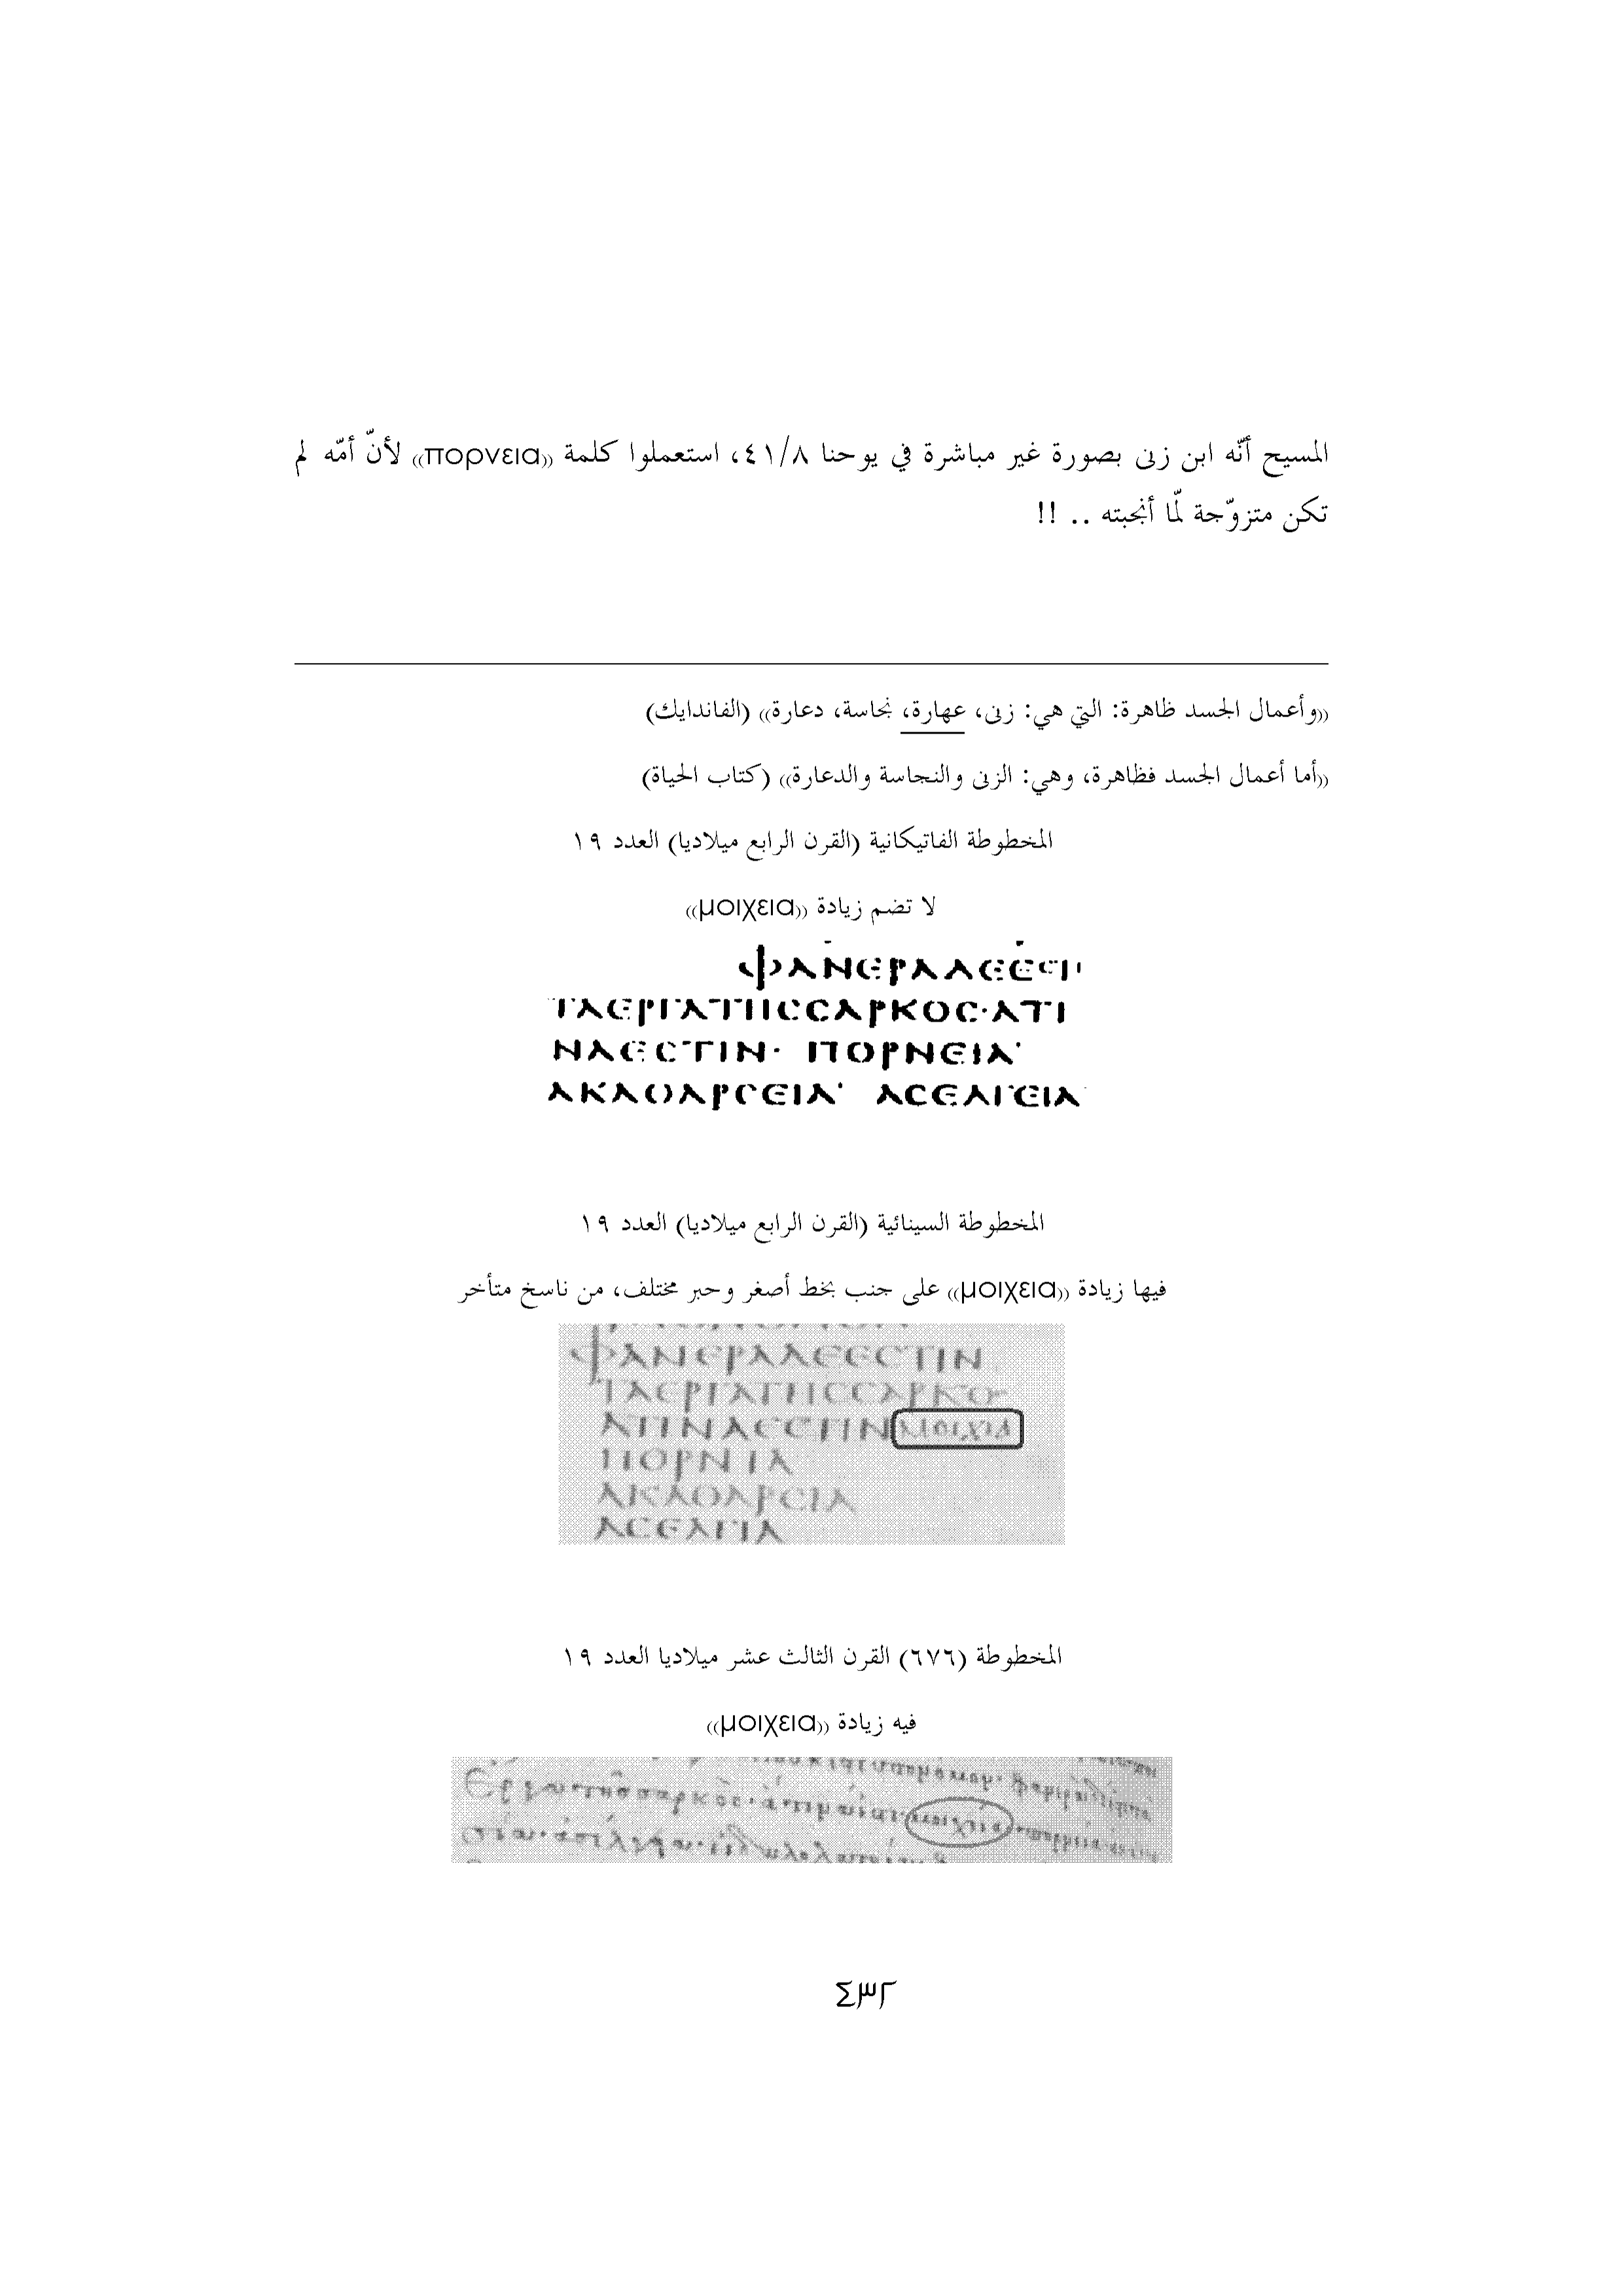 المسيح أنّه ابن زنى بصورة غير مباشرة في يوحنا ٤١/٨، استعملوا كلمة ((πορνεια)) لأنّ أمّه لم
تكن متزوّجة لمّا أنجبته .. !!
((وأعمال الجسد ظاهرة: التي هي: زنى، عهارة، نجاسة، دعارة)) (الفاندايك)
((أما أعمال الجسد فظاهرة، وهي: الزنى والنجاسة والدعارة)) (كتاب الحياة)
المخطوطة الفاتيكانية (القرن الرابع ميلاديا) العدد ١٩
لا تضم زيادة ((μοιχεια))
ΦΑΝΕΡΑΔΕΕϹΤΙ
ΤΑΕΡΓΑΤΗϹϹΑΡΚΟϹ·ΑΤΙ
ΝΑΕϹΤΙΝ· ΠΟΡΝΕΙΑ·
ΑΚΑΘΑΡϹΕΙΑ· ΑϹΕΛΓΕΙΑ
المخطوطة السينائية (القرن الرابع ميلاديا) العدد ١٩
فيها زيادة ((μοιχεια)) على جنب بخط أصغر وحبر مختلف، من ناسخ متأخر
ΦΑΝΕΡΑΔΕΕϹΤΙΝ
ΤΑΕΡΓΑΤΗϹϹΑΡΚΟ
ΑΤΙΝΑΕϹΤΙΝ ΜΟΙΧΙΑ
ΠΟΡΝΙΑ
ΑΚΑΘΑΡϹΙΑ
ΑϹΕΛΓΙΑ
المخطوطة (٦٧٦) القرن الثالث عشر ميلاديا العدد ١٩
فيه زيادة ((μοιχεια))
٤٣٢